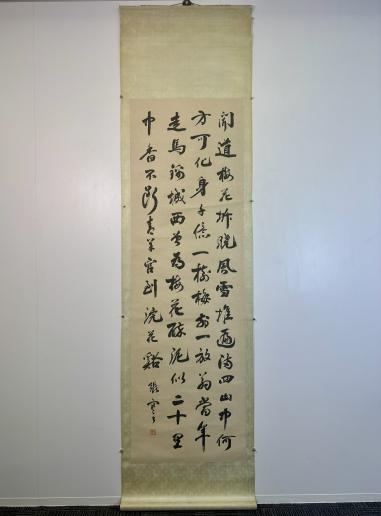 聞道梅花坼曉風雪堆遍滿四山中何
方可化身千億一樹梅前一放翁當年
走馬錦城西曾為梅花醉泥似二十里
中香不斷青羊宮到浣花谿